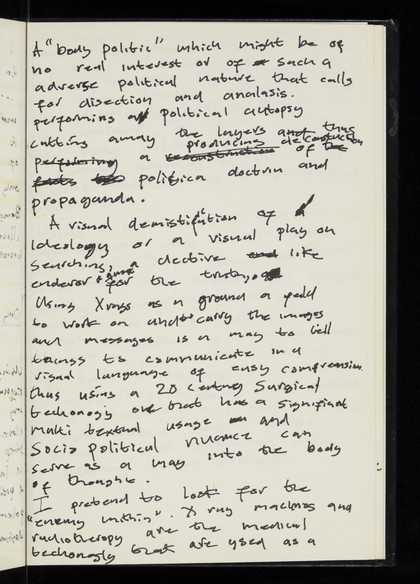 A "body politic" which might be of
no real interest or of such a
adverse political nature that calls
for disection and analasis.
performing a political autopsy
cutting away the layers and thus
performing a producing deconstruction of the
politica doctrin and
propaganda.
A visual demistification of
Ideology or a visual play on
searching, a dective like
endevor for the truth,
Using Xrays as a ground a pedd
to work on and to carry the images
and messages is a way to tell
things to communicate in a
visual language of easy comprension
thus using a 20 century surgical
techonogy one that has a significant
multi textual usage and
Socio political nuance can
serve as a way into the body
of thought.
I pretend to look for the
"enemy within". X ray machines and
radiotherapy are the medical
techonogly that are used as a